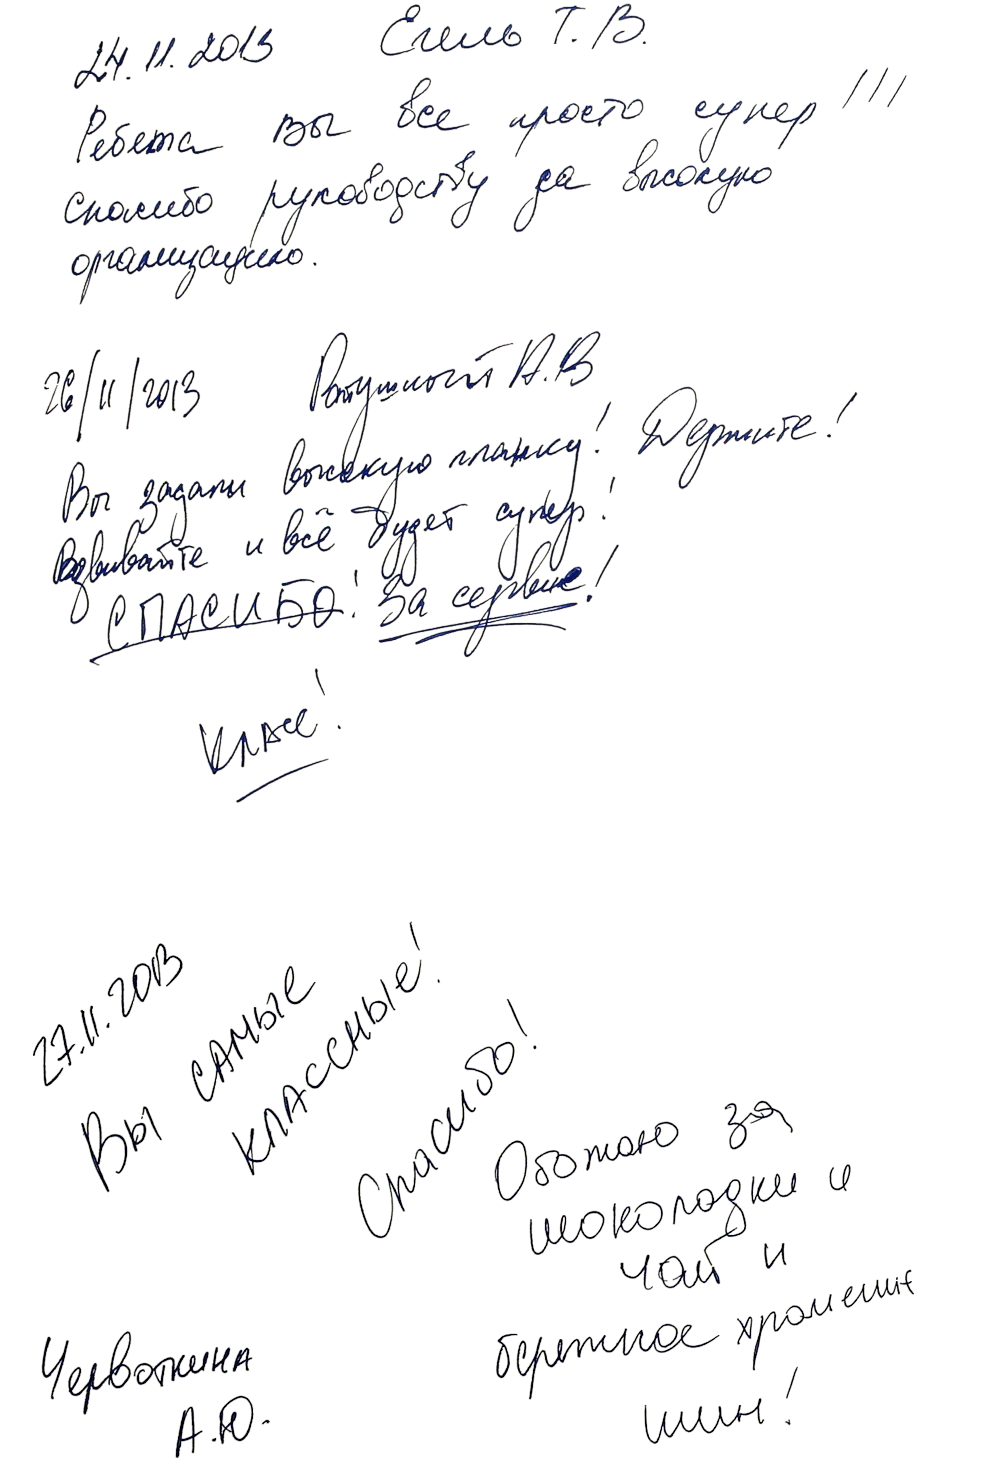 24.11.2013 Егель Т. В.
Ребята вы все просто супер!!!
Спасибо руководству за высокую
организацию.
26/11/2013 А.В
Вы задали высокую планку! Держите!
и всё будет супер!
СПАСИБО! За сервис!
Класс!
27.11.2013
Вы самые
классные!
Спасибо!
Обожаю за
шоколадки и
чай и
бережное хранение
шин!
Червоткина
А.Ю.